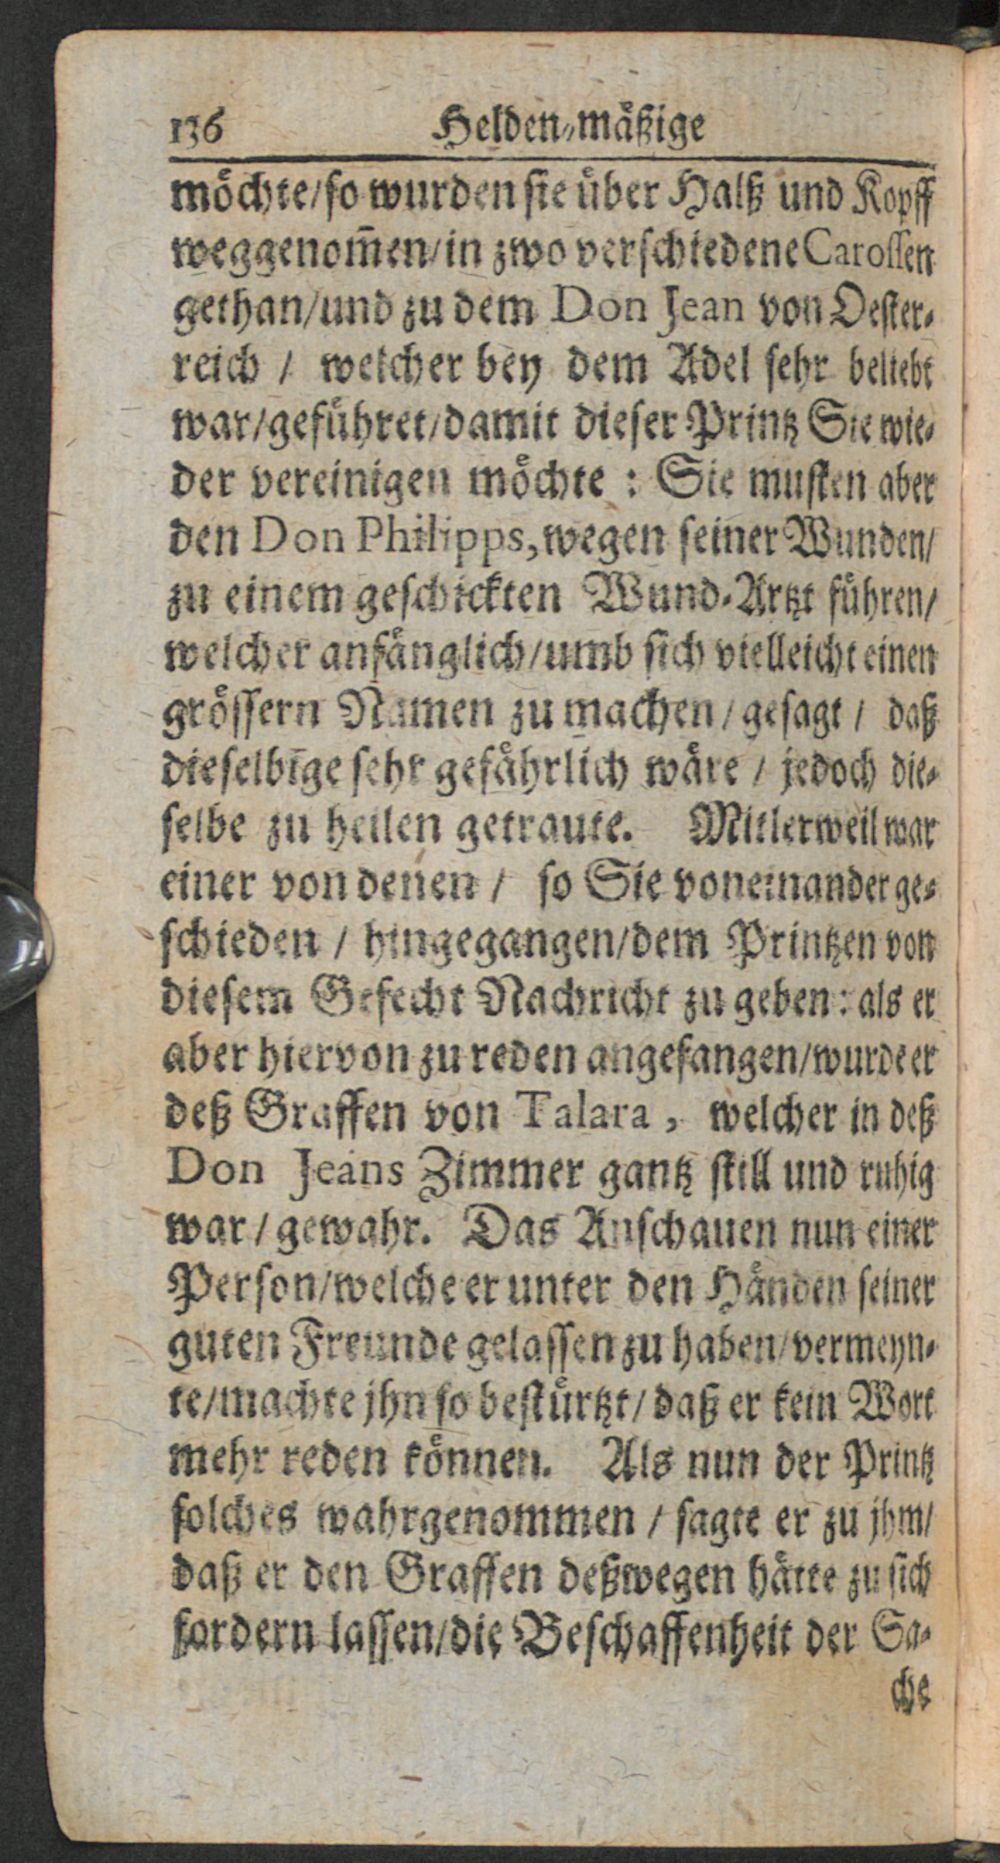 136 Helden-mäßige
möchte/so wurden sie über Halß und Kopff
weggenom̃en/in zwo verschiedene Carossen
gethan/und zu dem Don Jean von Oester-
reich / welcher bey dem Adel sehr beliebt
war/geführet/damit dieser Printz Sie wie-
der vereinigen möchte : Sie musten aber
den Don Philipps, wegen seiner Wunden/
zu einem geschickten Wund-Artzt führen/
welcher anfänglich/umb sich vielleicht einen
grössern Namen zu machen/gesagt / daß
dieselbige sehr gefährlich wäre / jedoch die-
selbe zu heilen getraute. Mitlerweil war
einer von denen / so Sie voneinander ge-
schieden / hingegangen/dem Printzen von
diesem Gefecht Nachricht zu geben: als er
aber hiervon zu reden angefangen/wurde er
deß Graffen von Talara, welcher in deß
Don Jeans Zimmer gantz still und ruhig
war/gewahr. Das Anschauen nun einer
Person/welche er unter den Händen seiner
guten Freunde gelassen zu haben/vermeyn-
te/machte jhn so bestürtzt/daß er kein Wort
mehr reden können. Als nun der Printz
solches wahrgenommen / sagte er zu jhm/
daß er den Graffen deßwegen hätte zu sich
fordern lassen/die Beschaffenheit der Sa-
che